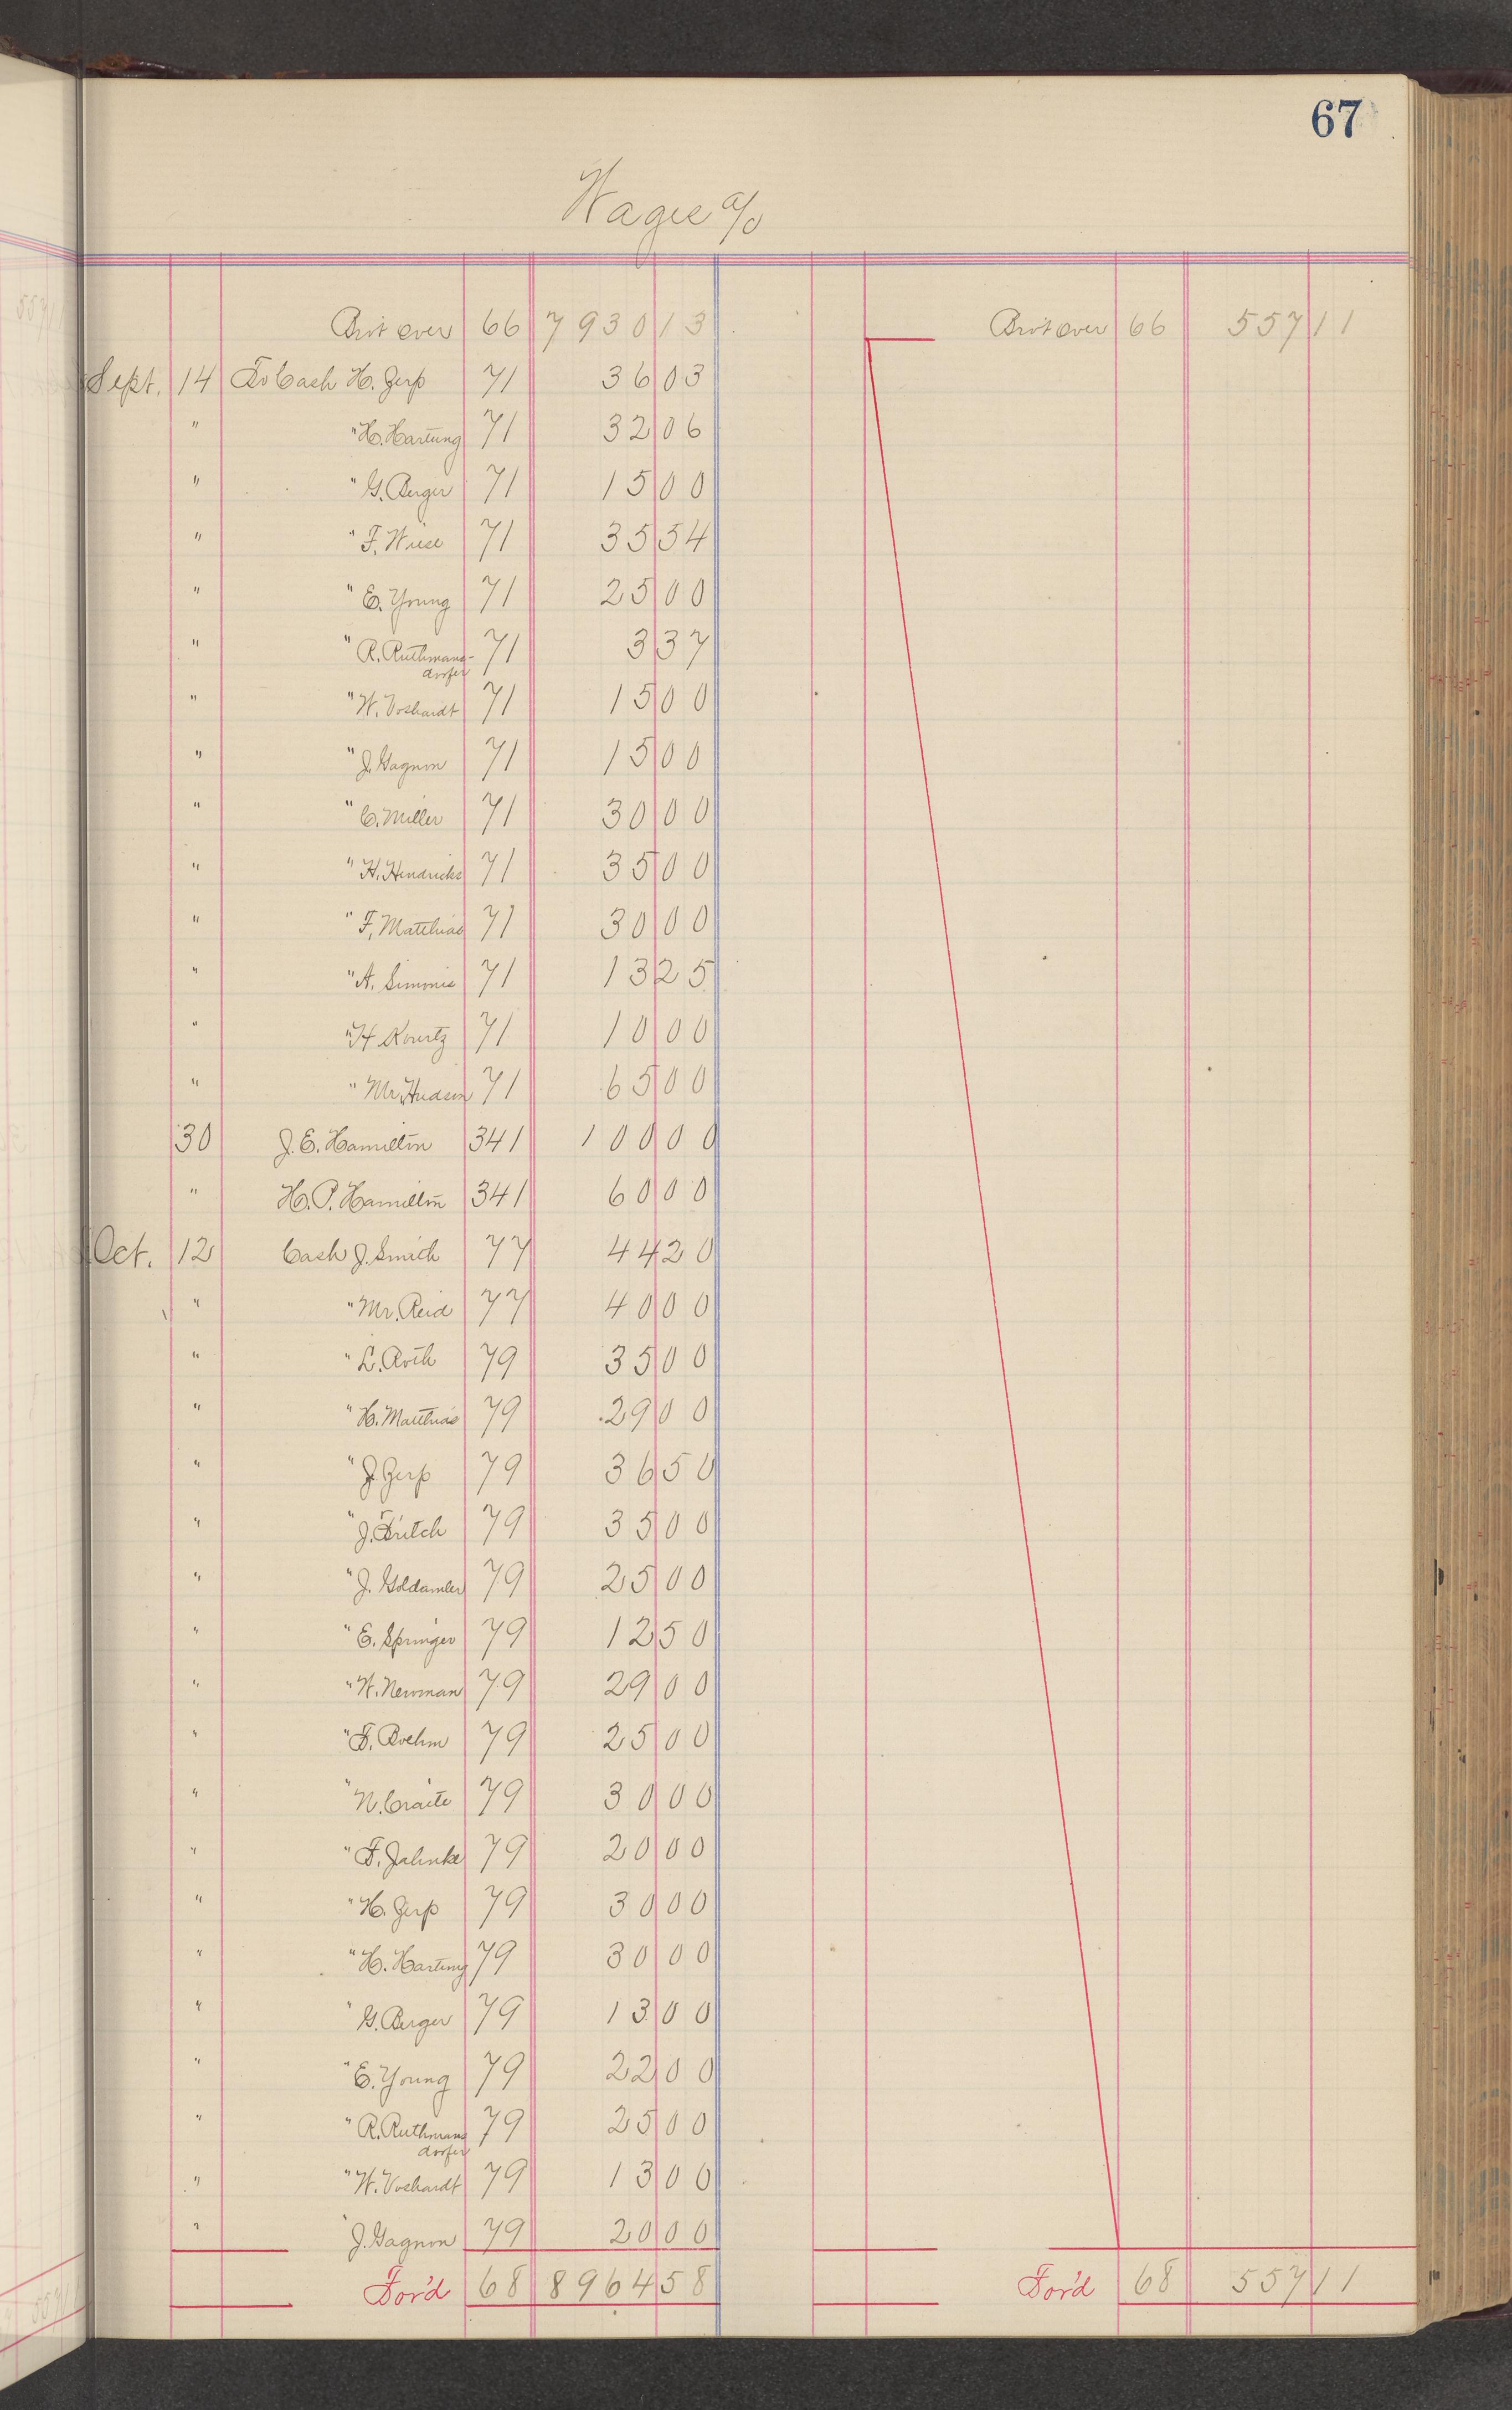 67
Wages a/c
Bro't over 66 7930 13 Bro't over 66 557 11
Sept. 14 To Cash H. Gerp 71 36 03
" " H. Hartung 71 32 06
" " G. Berger 71 15 00
" " F. Wiese 71 35 54
" " E. Young 71 25 00
" " R. Ruthmans-
dorfer 71 3 37
" " W. Voshardt 71 15 00
" " J. Gagnon 71 15 00
" " C. Miller 71 30 00
" " H. Hendricks 71 35 00
" " F. Matthias 71 30 00
" " A. Simonis 71 13 25
" " H Kountz 71 10 00
" " Mr. Hudson 71 65 00
30 J. E. Hamilton 341 100 00
" H. P. Hamilton 341 60 00
Oct. 12 Cash J. Smith 77 44 20
" " Mr. Reid 77 40 00
" " L. Roth 79 35 00
" " H. Matthias 79 29 00
" " J. Gerp 79 36 50
" " J. Fritch 79 35 00
" " J. Goldamler 79 25 00
" " E. Springer 79 12 50
" " W. Newman 79 29 00
" " F. Boehm 79 25 00
" " N. Craite 79 30 00
" " F. Jahnke 79 20 00
" " H. Gerp 79 30 00
" " H. Hartung 79 30 00
" " G. Berger 79 13 00
" " E. Young 79 22 00
" " R. Ruthmans
dorfer 79 25 00
" " W. Voshardt 79 13 00
" " J. Gagnon 79 20 00
For'd 68 8964 58 For'd 68 557 11